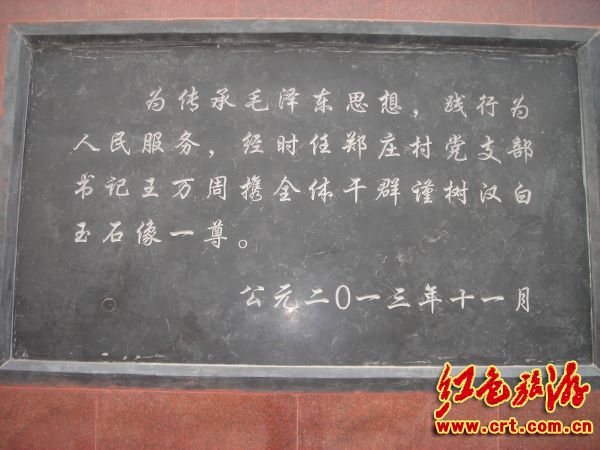 为传承毛泽东思想，践行为
人民服务，经时任郑庄村党支部
书记王万周携全体干群谨树汉白
玉石像一尊。
公元二〇一三年十一月
红色旅游
www.crt.com.cn